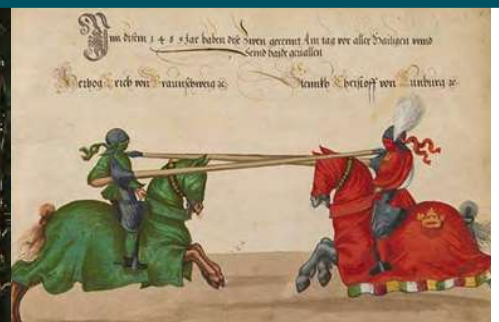 Inn disem 1489 Jar haben dise Zwen gerennt Am tag vor aller Heiligen vnnd
Seind baide geuallen
Hertzog Erich von Braunschweig ꝛc
Christoff von